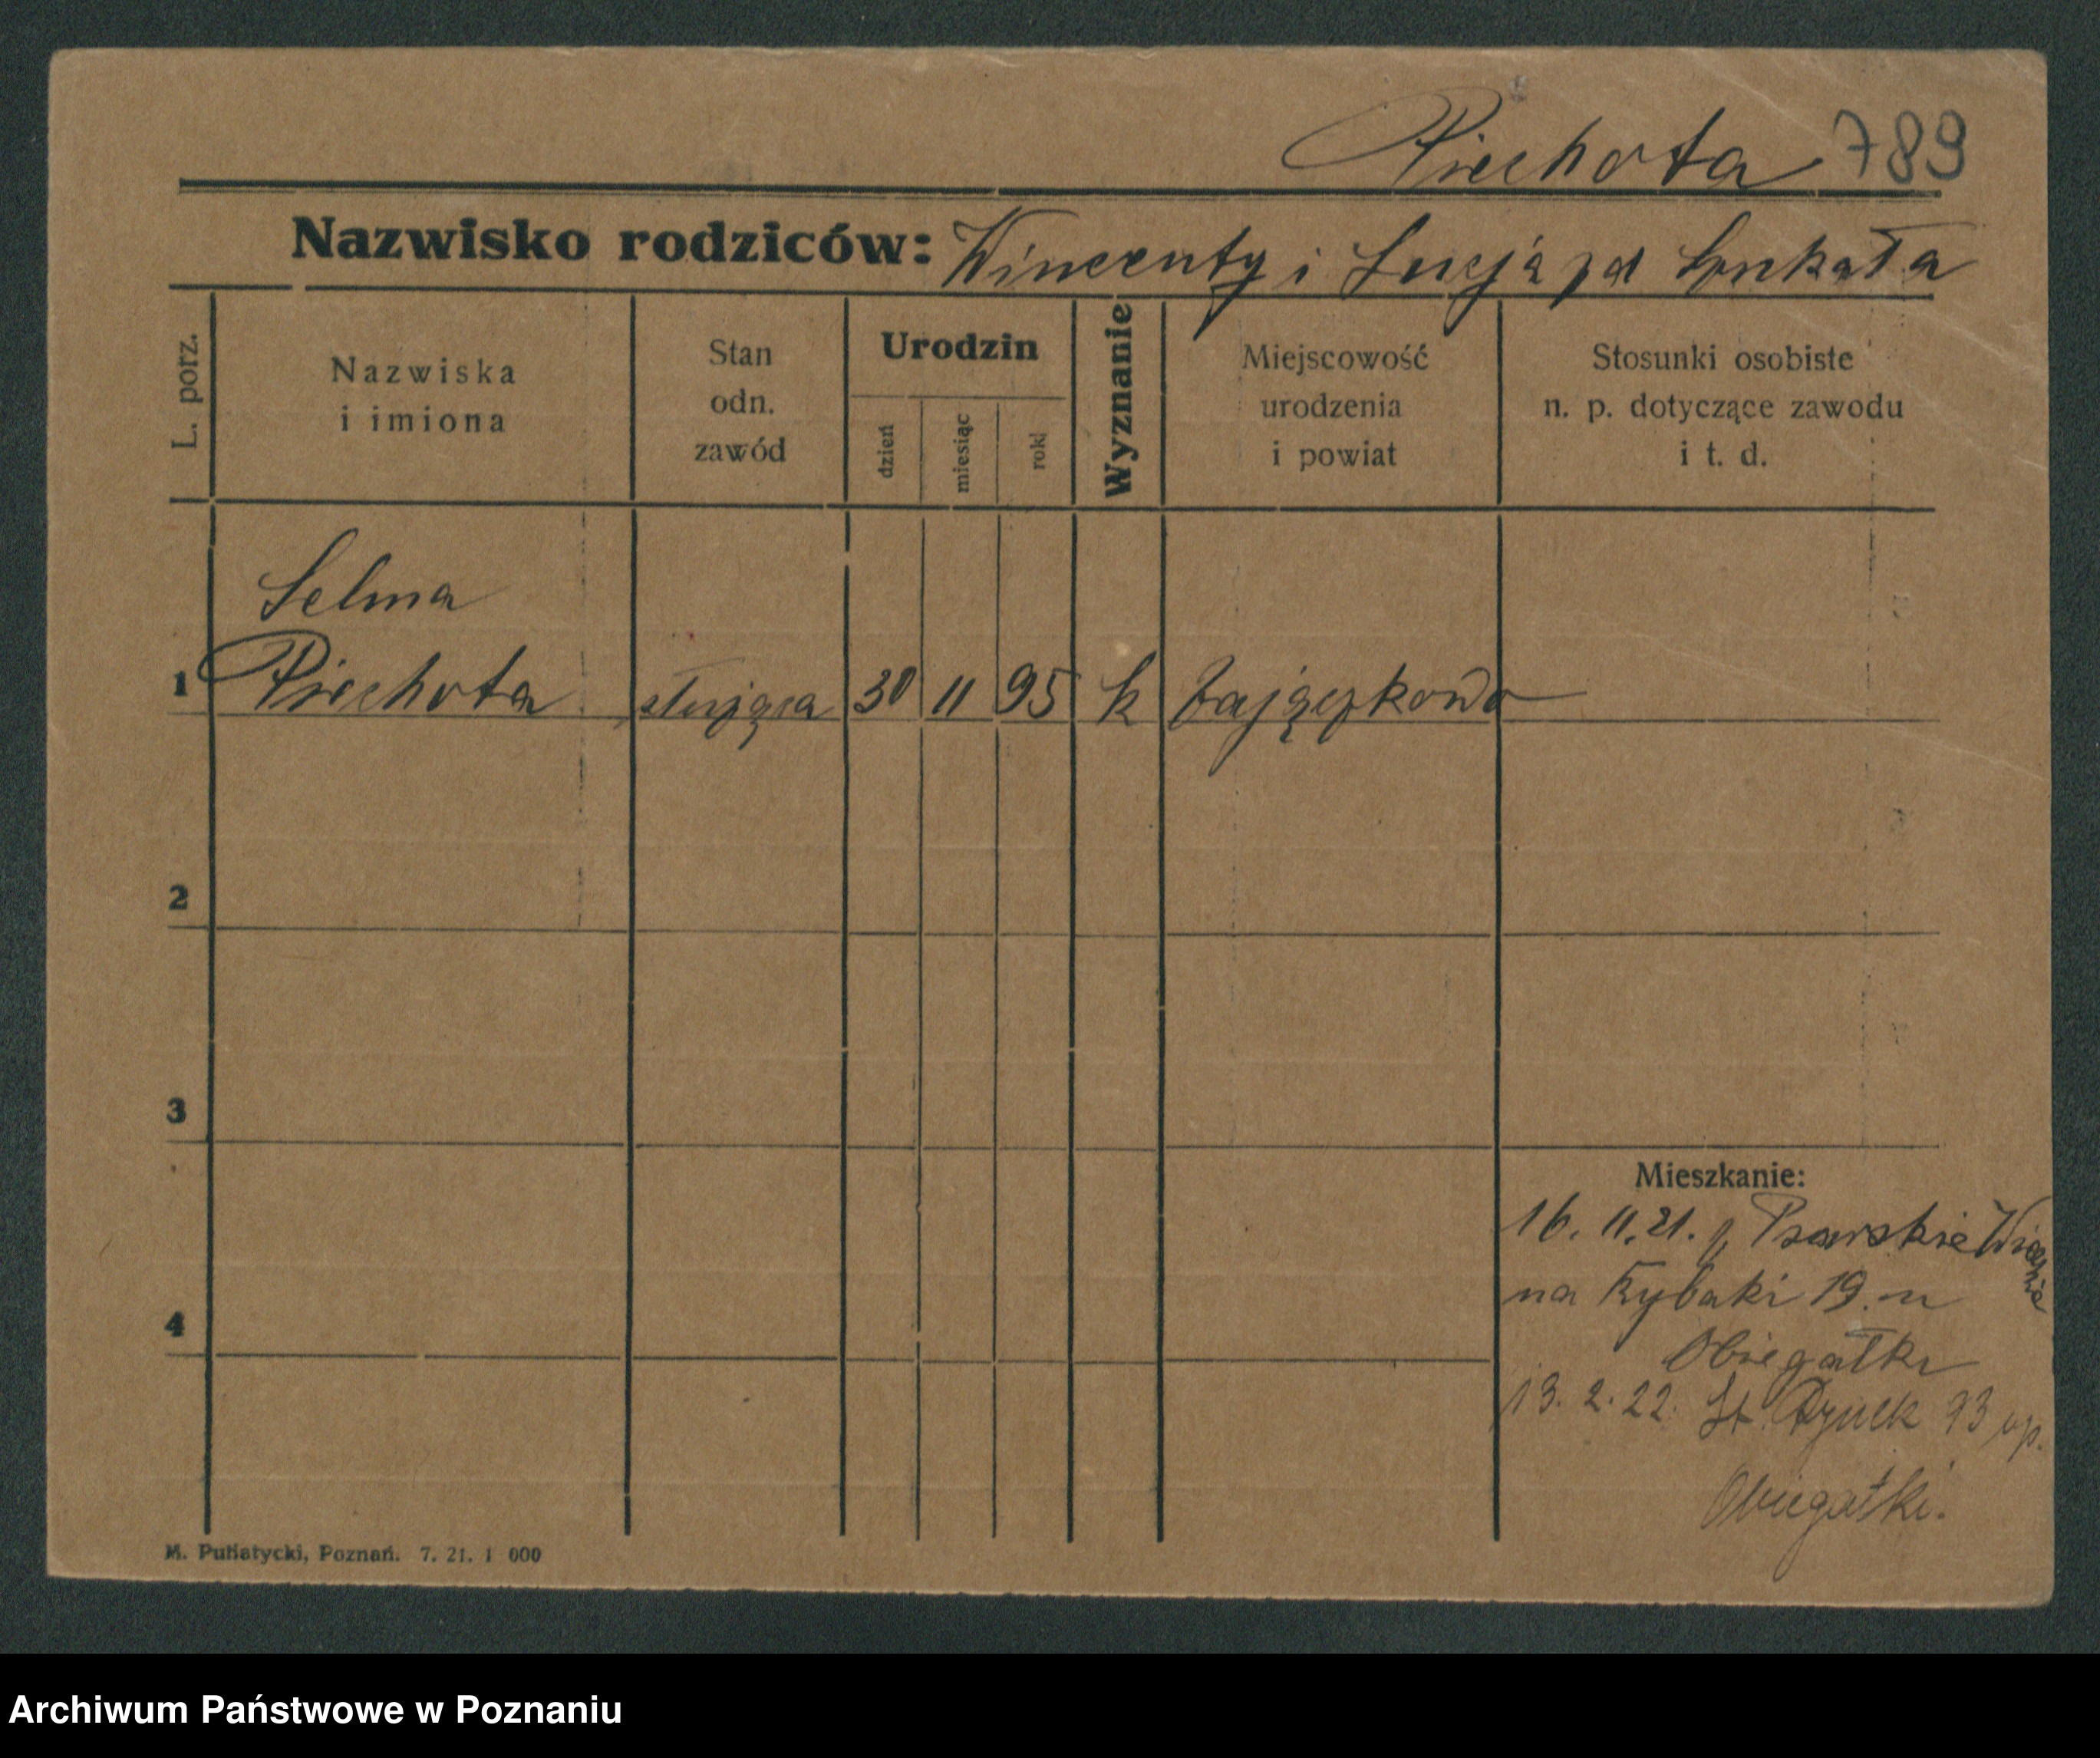 Piechota 789
Nazwisko rodziców: Wincenty i Łucja zd Szukała
L. porz.
Nazwiska
i imiona
Stan
odn.
zawód
Urodzin
dzień
miesiąc
rok
Wyznanie
Miejscowość
urodzenia
i powiat
Stosunki osobiste
n. p. dotyczące zawodu
i t. d.
Selma
1 Piechota służąca 30 11 95 k Zajączkowo
2
3
Mieszkanie:
16. 11. 21. Psarskie
na Rybaki 19. u
4
Obiegałki
13. 2. 22. St. Rynek 93
Obiegałki.
M. Putiatycki, Poznań. 7. 21. 1 000
Archiwum Państwowe w Poznaniu